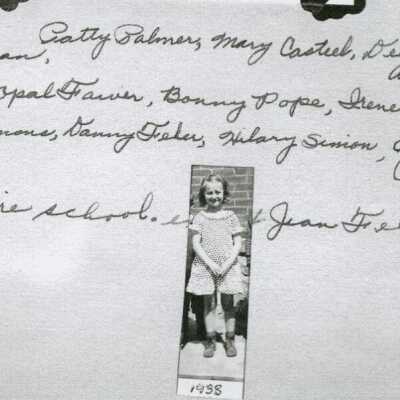 Patty Palmer, Mary Casteel, De
an,
Opal Faver, Bonny Pope, Irene
mons, Danny Feler, Hilary Simon,
re school. Jean Fe
1938